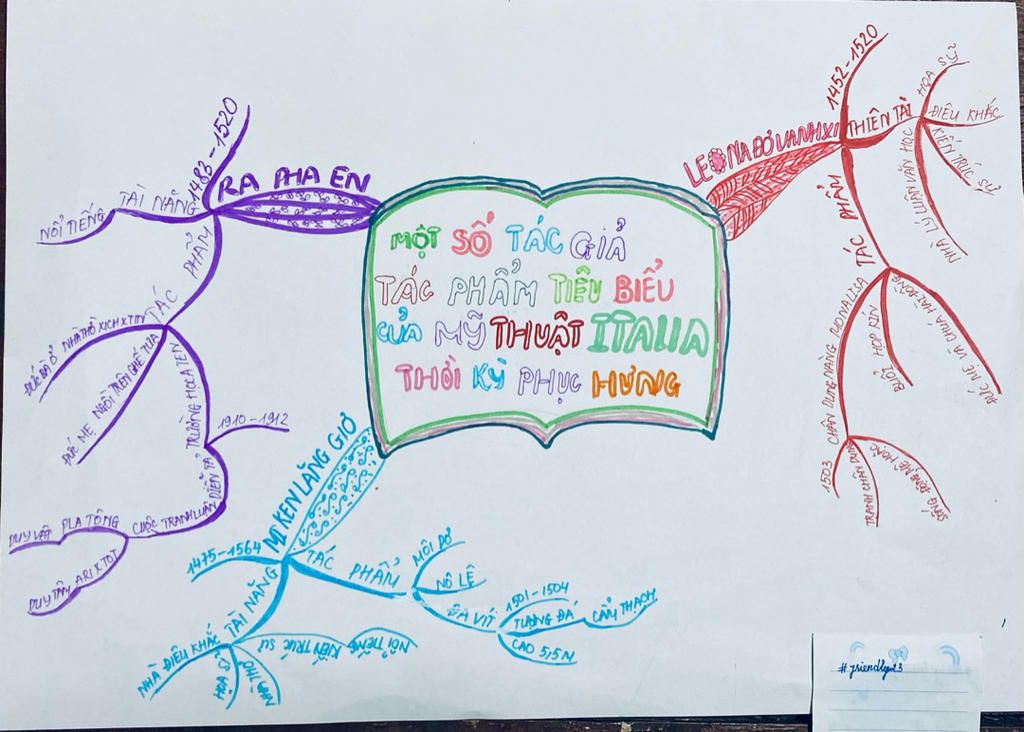 MỘT SỐ TÁC GIẢ
TÁC PHẨM TIÊU BIỂU
CỦA MỸ THUẬT ITALIA
THỜI KỲ PHỤC HƯNG
RA PHA EN
1483-1520
TÀI NĂNG
NỔI TIẾNG
TÁC PHẨM
ĐỨC BÀ Ở NHÀ THỜ XICHXTIN
ĐỨC MẸ NGỒI TRÊN GHẾ TỰA
TRƯỜNG HỌC ATEN
1910-1912
DIỄN TẢ
CUỘC TRANH LUẬN
PLA TÔNG
DUY VẬT
ARIXTOT
DUY TÂM
LEONA ĐỞ VANHXI
1452-1520
THIÊN TÀI
HỌA SỸ
ĐIÊU KHẮC
KIẾN TRÚC SƯ
NHÀ LÝ LUẬN VĂN HỌC
TÁC PHẨM
CHÂN DUNG NÀNG MONALISA
1503
TRANH CHÂN DUNG
BUỔI HỌP KÍN
ĐỨC MẸ VÀ CHÚA HÀI ĐỒNG
MI KEN LĂNG GIƠ
1475-1564
TÀI NĂNG
NHÀ ĐIÊU KHẮC
HỌA SĨ
NHÀ THƠ
KIẾN TRÚC SƯ
NỔI TIẾNG
TÁC PHẨM
MÔI DƠ
NÔ LỆ
ĐA VÍT
1501-1504
TƯỢNG ĐÁ
CẨM THẠCH
CAO 5,5M